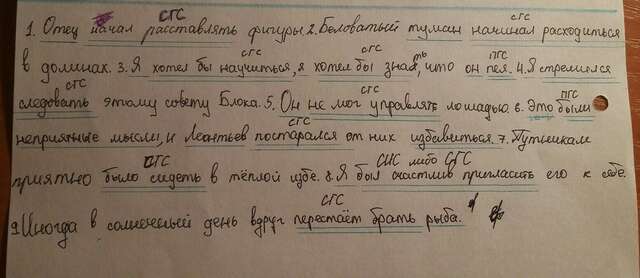 СГС СГС
1. Отец начал расставлять фигуры 2. Беловатый туман начинал расходиться
СГС СГС ПГС
в долинах. 3. Я хотел бы научиться, я хотел бы знать, что он пел. 4. Я стремился
СГС СГС ПГС
следовать этому совету Блока. 5. Он не мог управлять лошадью. 6. Это были
СГС
неприятные мысли, и Леонтьев постарался от них избавиться. 7. Путникам
СГС СИС либо СГС
приятно было сидеть в тёплой избе. 8. Я был счастлив пригласить его к себе.
СГС
9. Иногда в солнечный день вдруг перестаёт брать рыба.